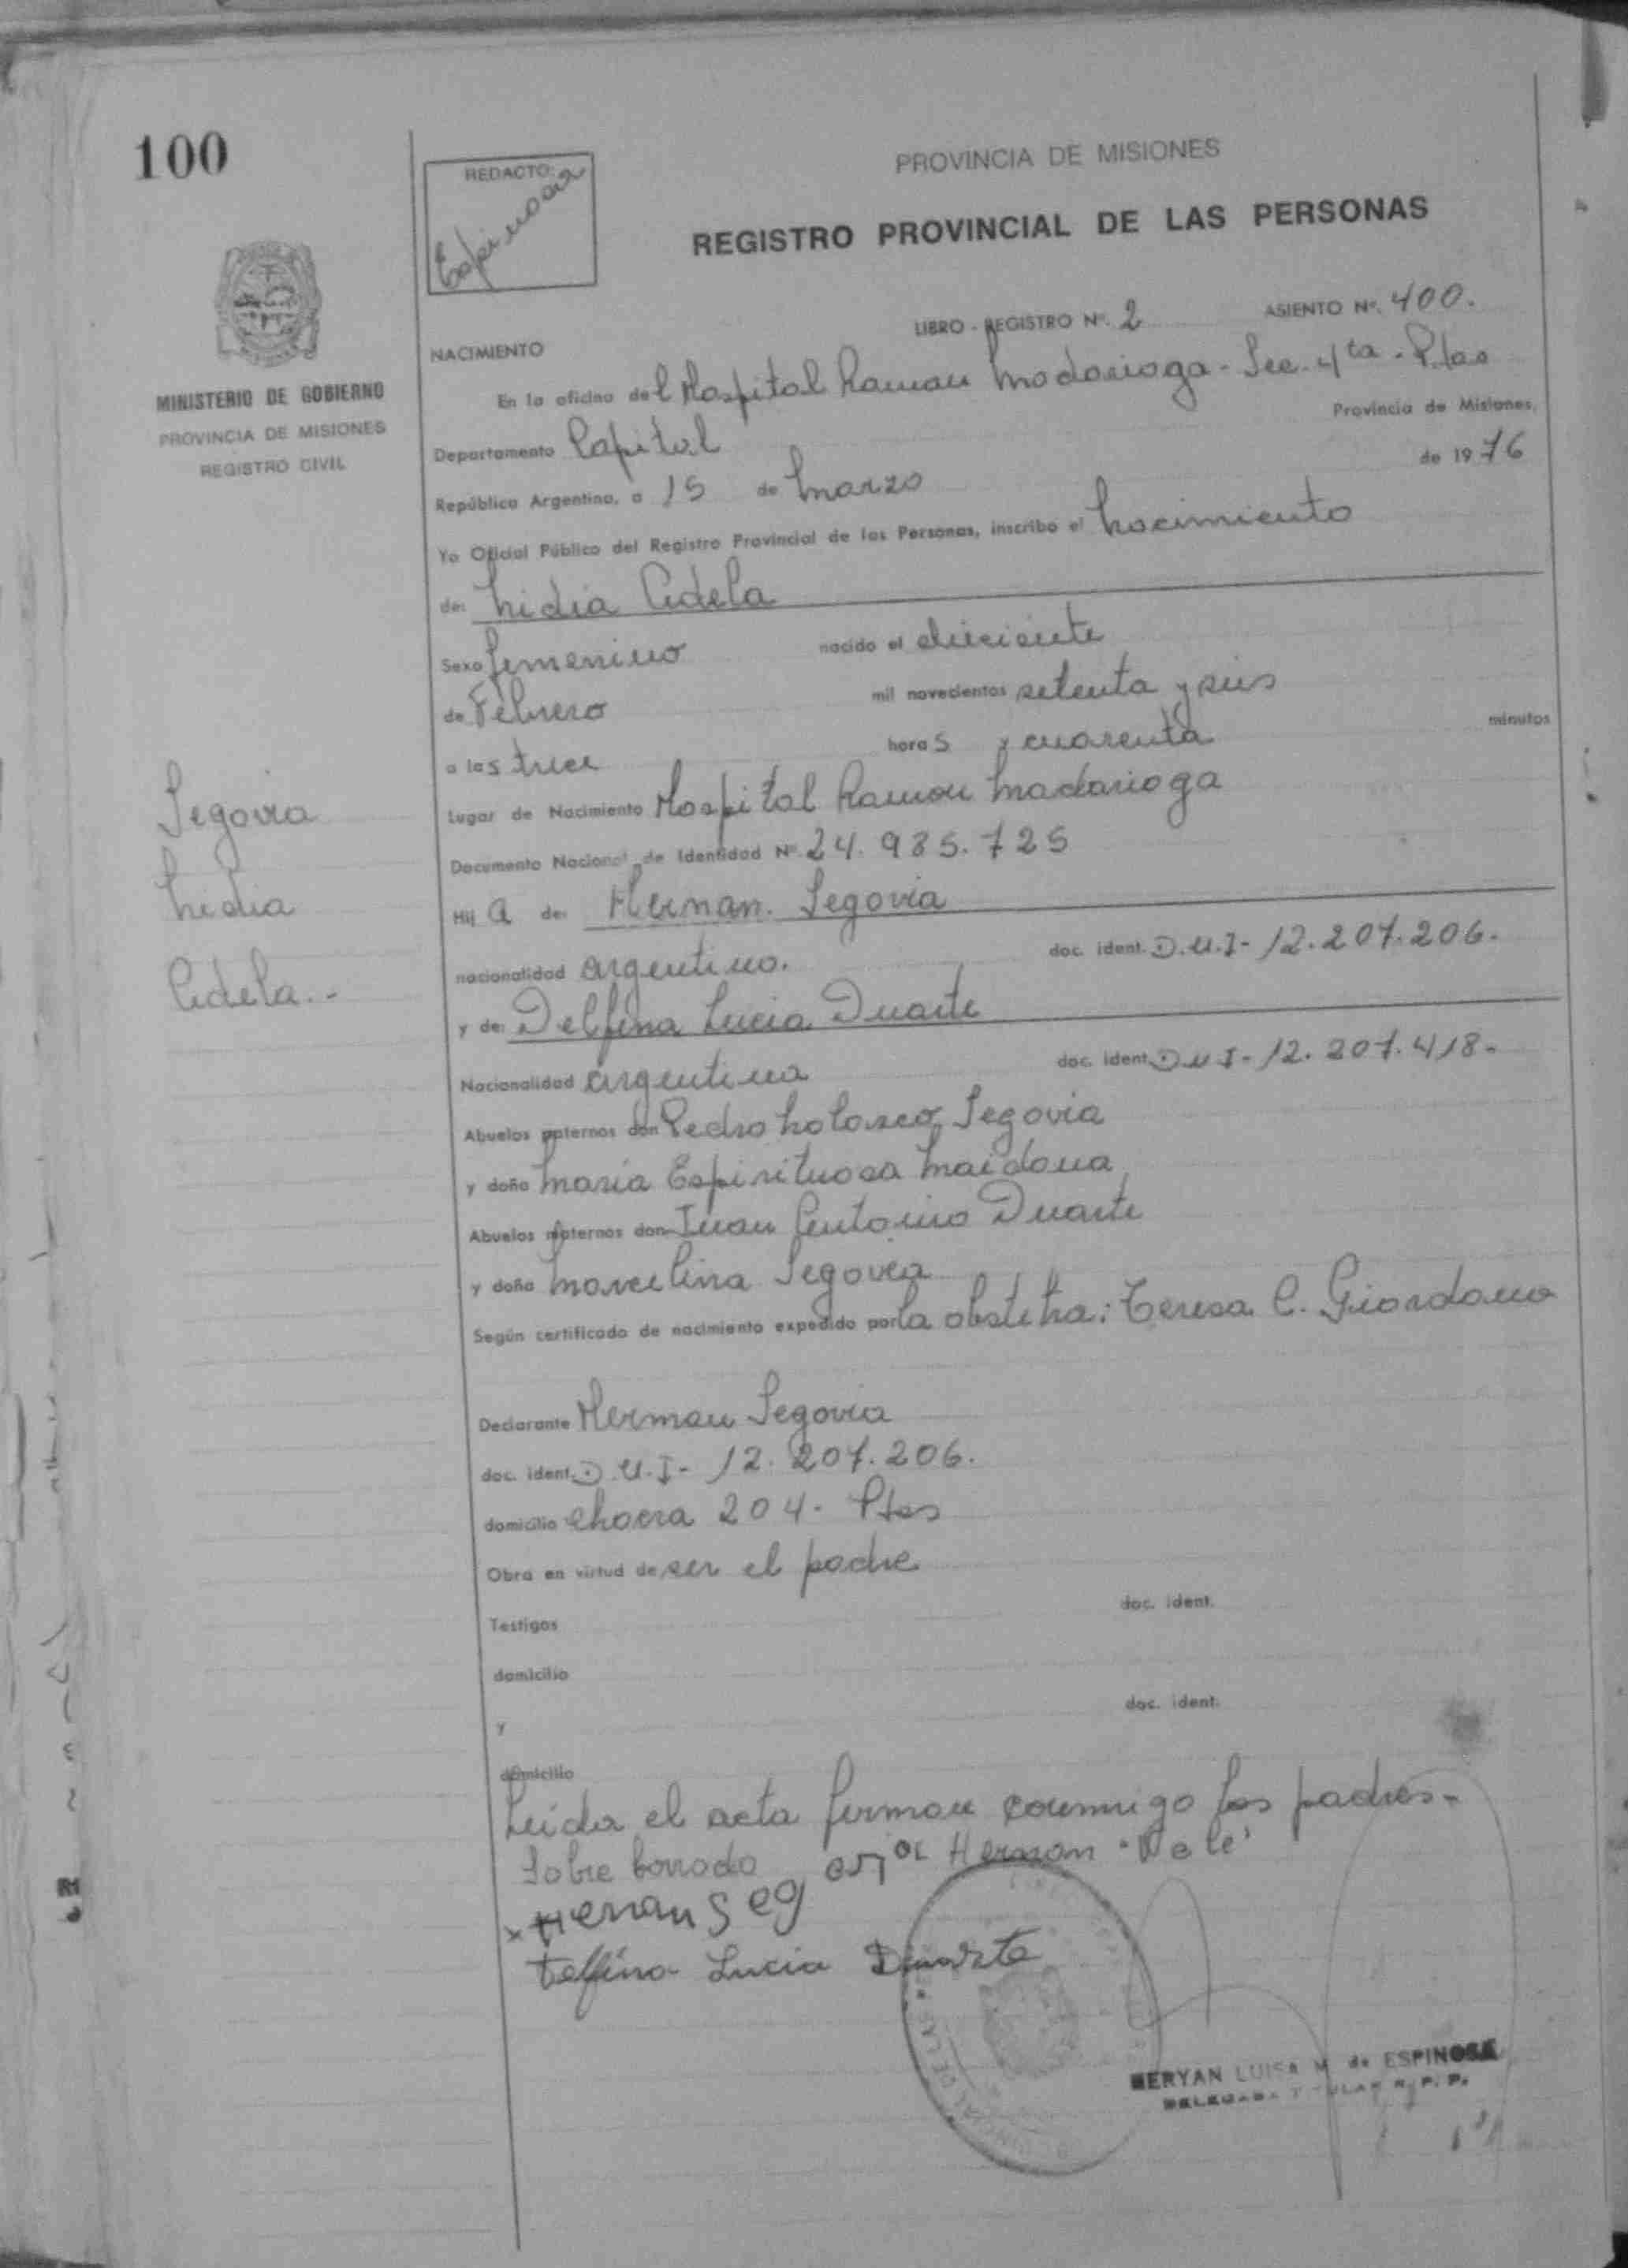 100
REDACTO:
Espinosa
PROVINCIA DE MISIONES
REGISTRO PROVINCIAL DE LAS PERSONAS
MINISTERIO DE GOBIERNO
PROVINCIA DE MISIONES
REGISTRO CIVIL
LIBRO - REGISTRO Nº. 2 ASIENTO Nº. 400.
NACIMIENTO
En la oficina del Hospital Ramon Madariaga - Sec. 4ta - P.das
Provincia de Misiones,
Departamento Capital
República Argentina, a 15 de Marzo de 1976
Yo Oficial Público del Registro Provincial de las Personas, inscribo el Nacimiento
de: Nidia Adela
Sexo femenino nacido el diecisiete
de Febrero mil novecientos setenta y seis
a las trece horas y cuarenta minutos
Lugar de Nacimiento Hospital Ramon Madariaga
Documento Nacional de Identidad Nº 24.985.725
Hija de: Hernan. Segovia
nacionalidad argentino. doc. ident. D.U.I- 12.207.206.
y de: Delfina Lucia Duarte
Nacionalidad argentina doc. ident. D U I- 12.207.418-
Abuelos paternos don Pedro Nolasco Segovia
y doña Maria Espirituosa Maidana
Abuelos maternos don Juan Antonio Duarte
y doña Marcelina Segovia
Según certificado de nacimiento expedido por la obstetra: Teresa C. Giordano
Segovia
Nidia
Adela..-
Declarante Hernan Segovia
doc. ident. D U.I- 12.207.206.
domicilio chacra 204- Pdas
Obra en virtud de ser el padre
Testigos doc. ident.
domicilio
y doc. ident.
domicilio
Leida el acta firman conmigo los padres-
Sobre borrado Hernan "Vale"
x Hernan Seg
Delfina Lucia Duarte
MERYAN LUISA M de ESPINOSA
DELEGADA TITULAR R. P. P.